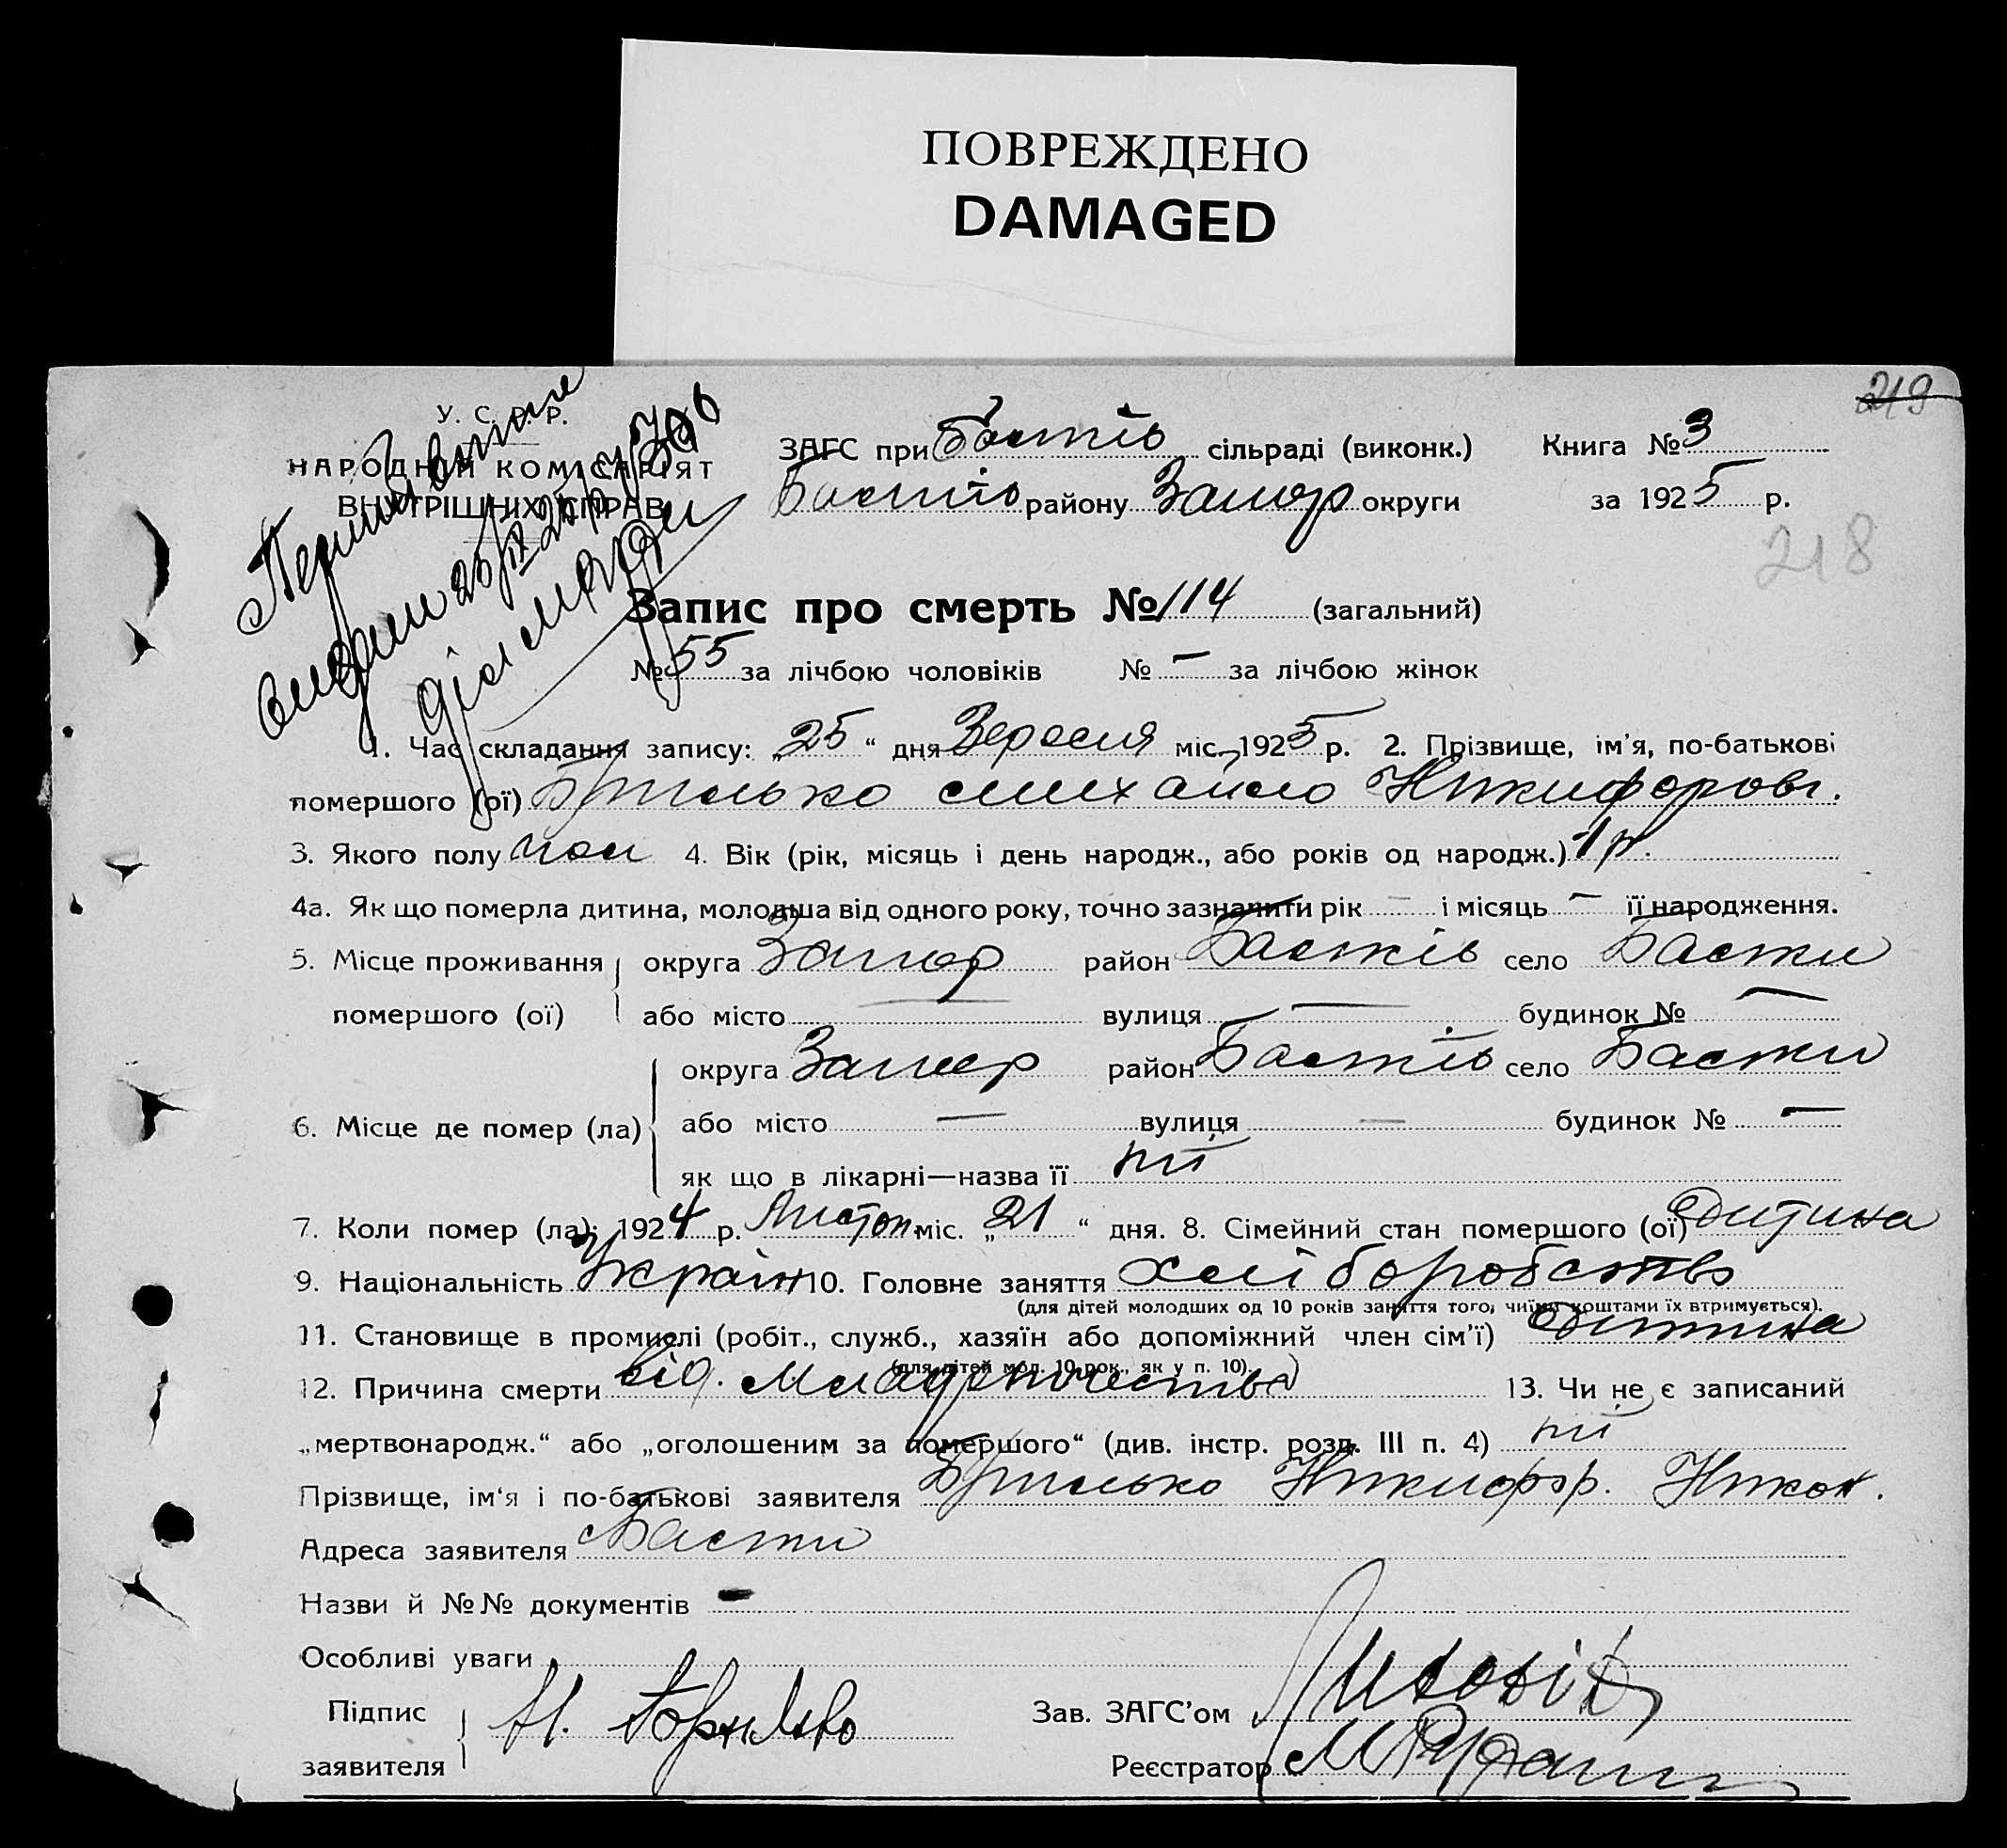 ПОВРЕЖДЕНО
DAMAGED
219
У. С. Р. Р.
НАРОДНІЙ КОМІСАРІЯТ
ВНУТРІШНІХ СПРАВ
ЗАГС при сільраді (виконк.) Книга № 3
району Запор округи за 1925 р.
218
Запис про смерть № 114 (загальний)
№ 55 за лічбою чоловіків № — за лічбою жінок
1. Час складання запису: „25“ дня Вересня міс. 1925 р. 2. Прізвище, ім'я, по-батькові
помершого (ої) Брилько Михайло Никифоров.
3. Якого полу чол 4. Вік (рік, місяць і день народж., або років од народж.) 1 р.
4а. Як що померла дитина, молодша від одного року, точно зазначити рік — і місяць — її народження.
5. Місце проживання округа Запор район село
помершого (ої) або місто — вулиця — будинок № —
округа Запор район село
6. Місце де помер (ла) або місто — вулиця — будинок № —
як що в лікарні—назва її ні
7. Коли помер (ла): 1924 р. Листоп. міс. „21“ дня. 8. Сімейний стан помершого (ої) Дитина
9. Національність Україн 10. Головне заняття хліборобство
(для дітей молодших од 10 років заняття того, чиїми коштами їх втримується).
11. Становище в промислі (робіт., служб., хазяїн або допоміжний член сім'ї) Дитина
(для дітей мол. 10 рок., як у п. 10).
12. Причина смерти від. Младенчества 13. Чи не є записаний
„мертвонародж.“ або „оголошеним за помершого“ (див. інстр. розд. III п. 4) ні
Прізвище, ім'я і по-батькові заявителя Брилько Никифор. Никон.
Адреса заявителя
Назви й №№ документів —
Особливі уваги
Підпис
заявителя Н. Брилько
Зав. ЗАГС'ом
Реєстратор